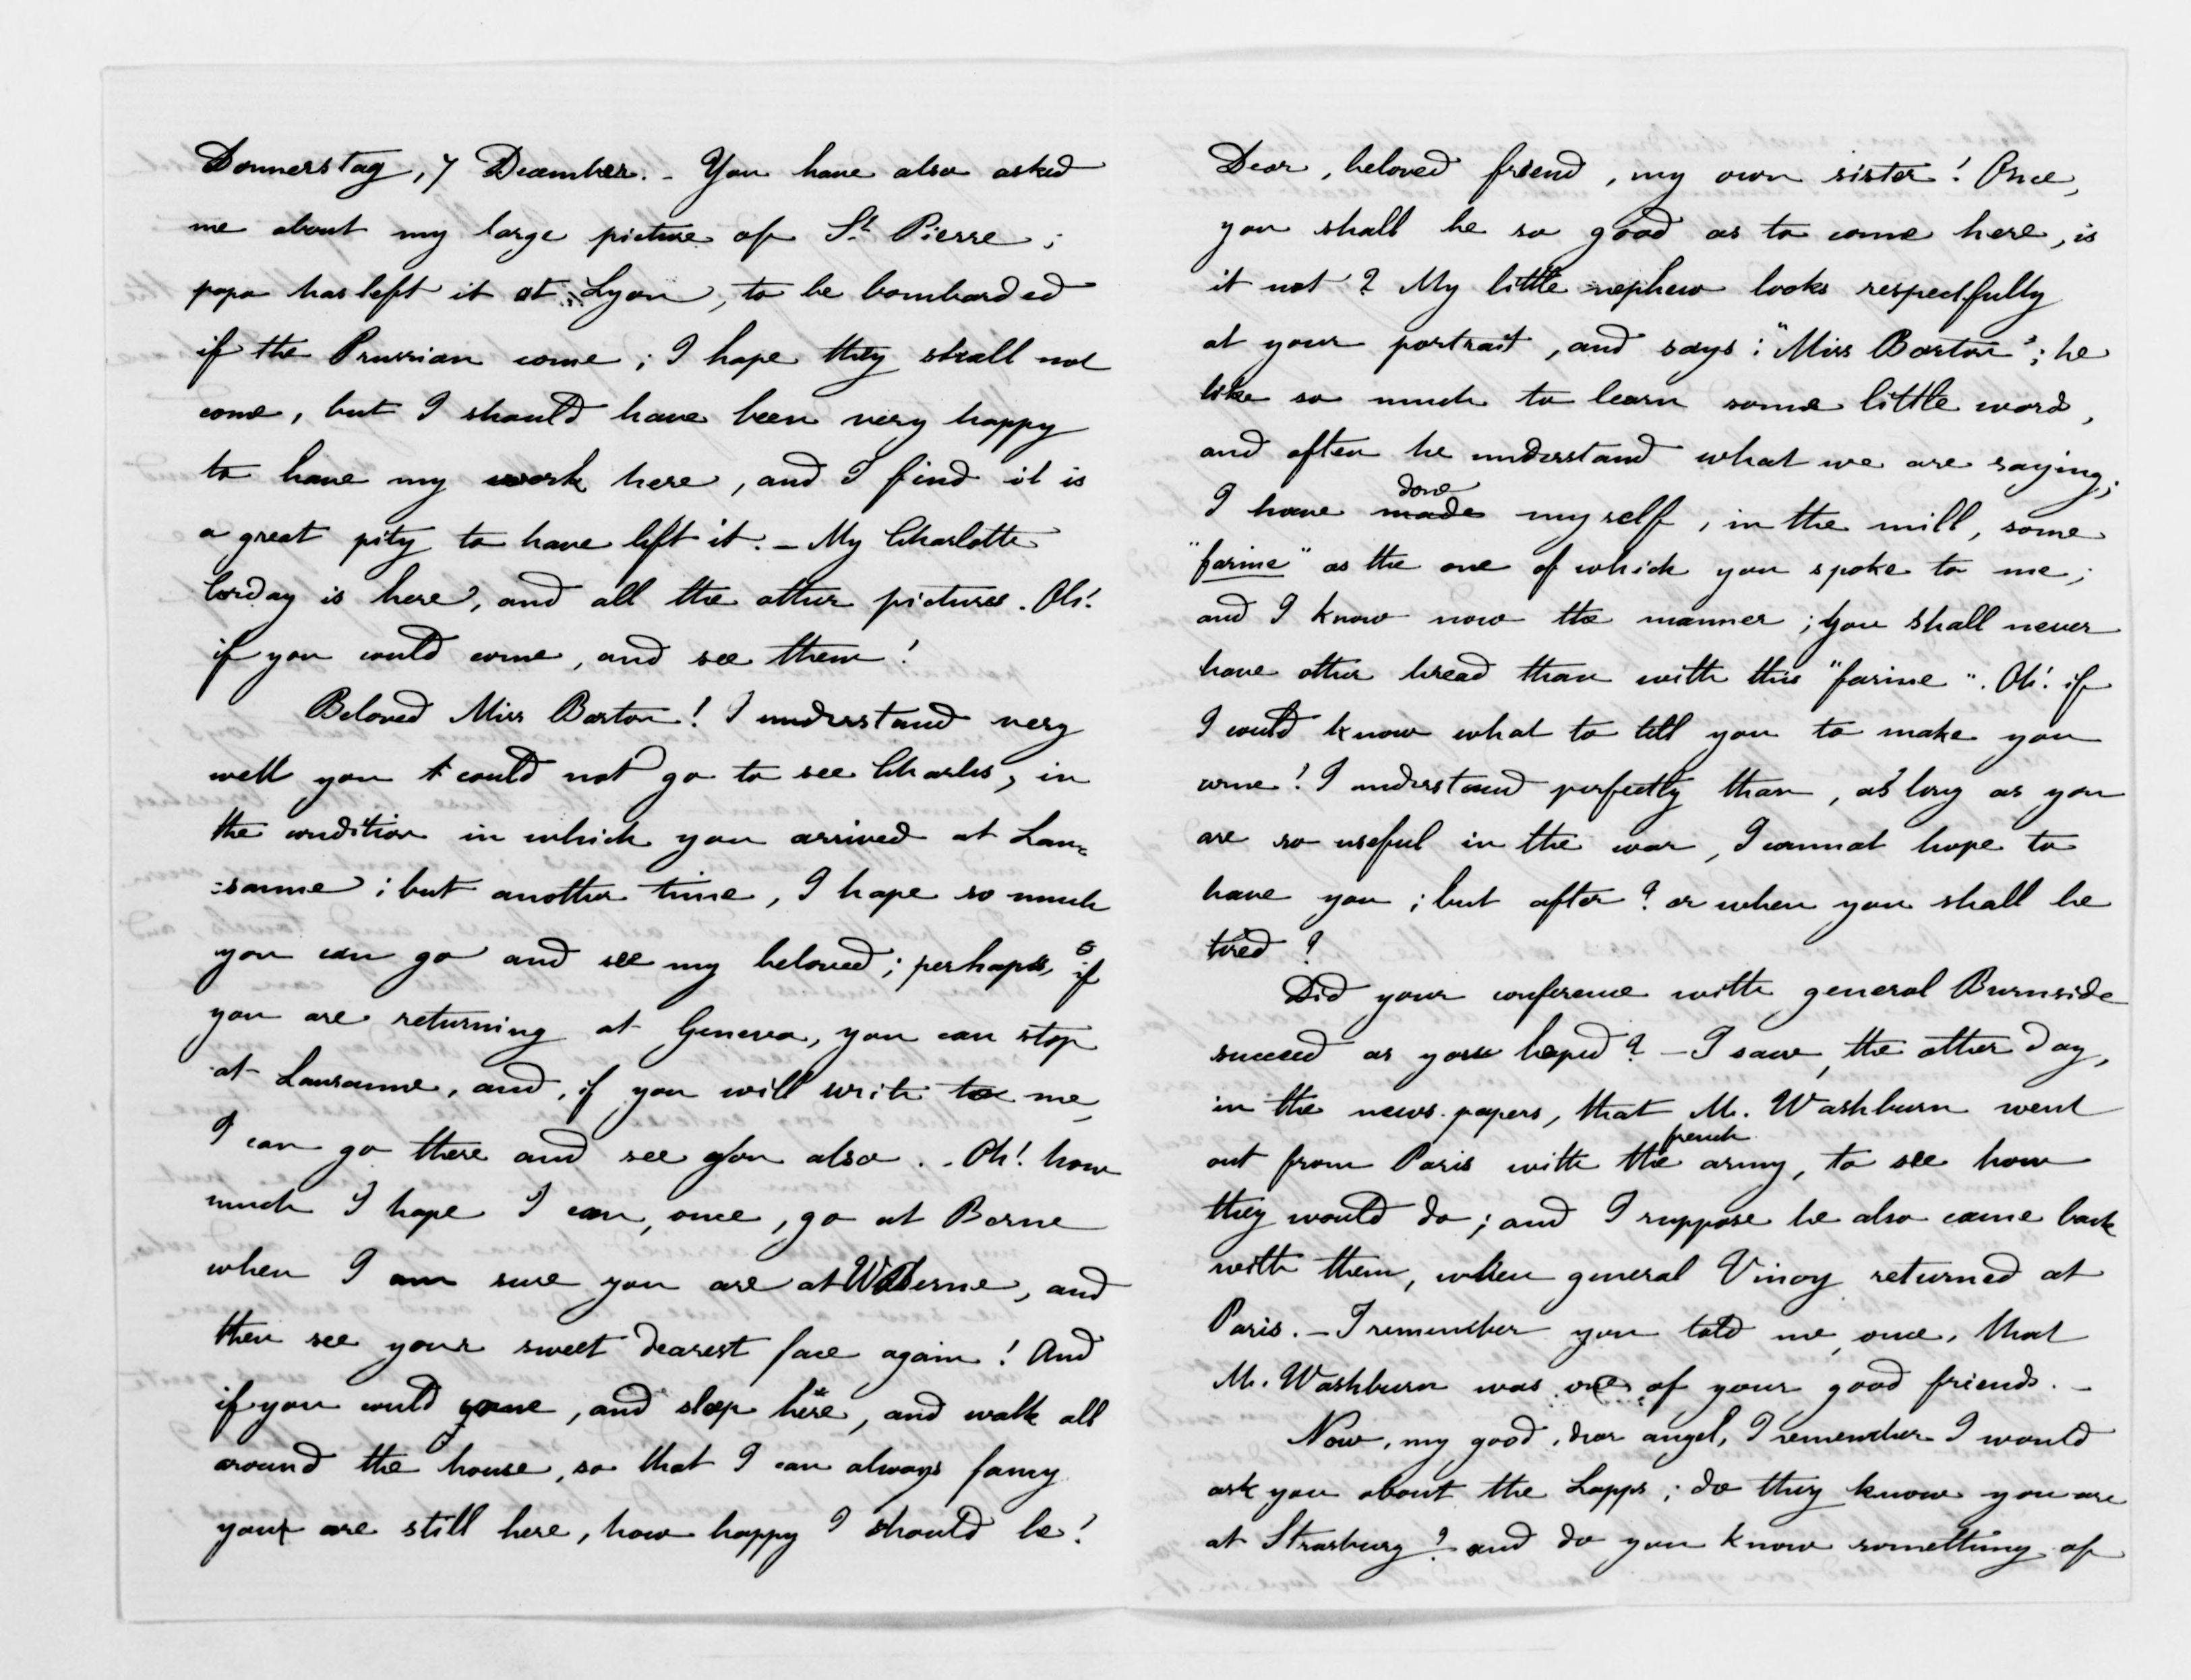 Donnerstag, 7 December. - You have also asked
me about my large picture of St Pierre;
papa has left it at Lyon, to be bombarded
if the Prussian come; I hope they shall not
come, but I should have been very happy
to have my work here, and I find it is
a great pity to have left it. - My Charlotte
Corday is here, and all the other pictures. Oh!
if you could come, and see them!
Beloved Miss Barton! I understand very
well you could not go to see Charles, in
the condition in which you arrived at Lau=
=sanne; but another time, I hope so much
you can go and see my beloved; perhaps, if
you are returning at Geneva, you can stop
at Lausanne, and, if you will write to me,
I can go there and see you also. - Oh! how
much I hope I can, once, go at Berne
when I am sure you are at Berne, and
then see your sweet dearest face again! And
if you could come, and sleep here, and walk all
around the house, so that I can always fancy
you are still here, how happy I should be!
Dear, beloved friend, my own sister! Once,
you shall be so good as to come here, is
it not? My little nephew looks respectfully
at your portrait, and says: "Miss Barton"; he
like so much to learn some little word,
and often he understand what we are saying;
I have made done myself, in the mill, some
"farine" as the one of which you spoke to me;
and I know now the manner; you shall never
have other bread than with this "farine". Oh! if
I could know what to tell you to make you
come! I understand perfectly than, as long as you
are so useful in the war, I cannot hope to
have you; but after? or when you shall be
tired?
Did your conference with general Burnside
succeed as you hoped? - I saw, the other day,
in the news-papers, that M. Washburn went
out from Paris with the french army, to see how
they would do; and I suppose he also came back
with them, when general Vinoy returned at
Paris. - I remember you told me, once, that
M. Washburn was one of your good friends. -
Now, my good, dear angel, I remember I would
ask you about the Lapps; do they know you are
at Strasburg? and do you know something of